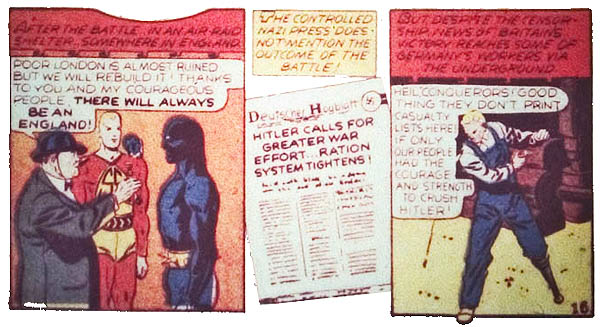 AFTER THE BATTLE, IN AN AIR-RAID
SHELTER SOMEWHERE IN ENGLAND
POOR LONDON IS ALMOST RUINED
BUT WE WILL REBUILD IT! THANKS
TO YOU AND MY COURAGEOUS
PEOPLE, THERE WILL ALWAYS
BE AN
ENGLAND!
THE CONTROLLED
NAZI PRESS DOES
NOT MENTION THE
OUTCOME OF THE
BATTLE!
Deutscher
HITLER CALLS FOR
GREATER WAR
EFFORT...RATION
SYSTEM TIGHTENS!
BUT DESPITE THE CENSOR-
SHIP, NEWS OF BRITAIN'S
VICTORY REACHES SOME OF
GERMANY'S WORKERS VIA
THE UNDERGROUND
HEIL 'CONQUERORS'! GOOD
THING THEY DON'T PRINT
CASUALTY
LISTS HERE!
IF ONLY
OUR PEOPLE
HAD THE
COURAGE
AND STRENGTH
TO CRUSH
HITLER!
16